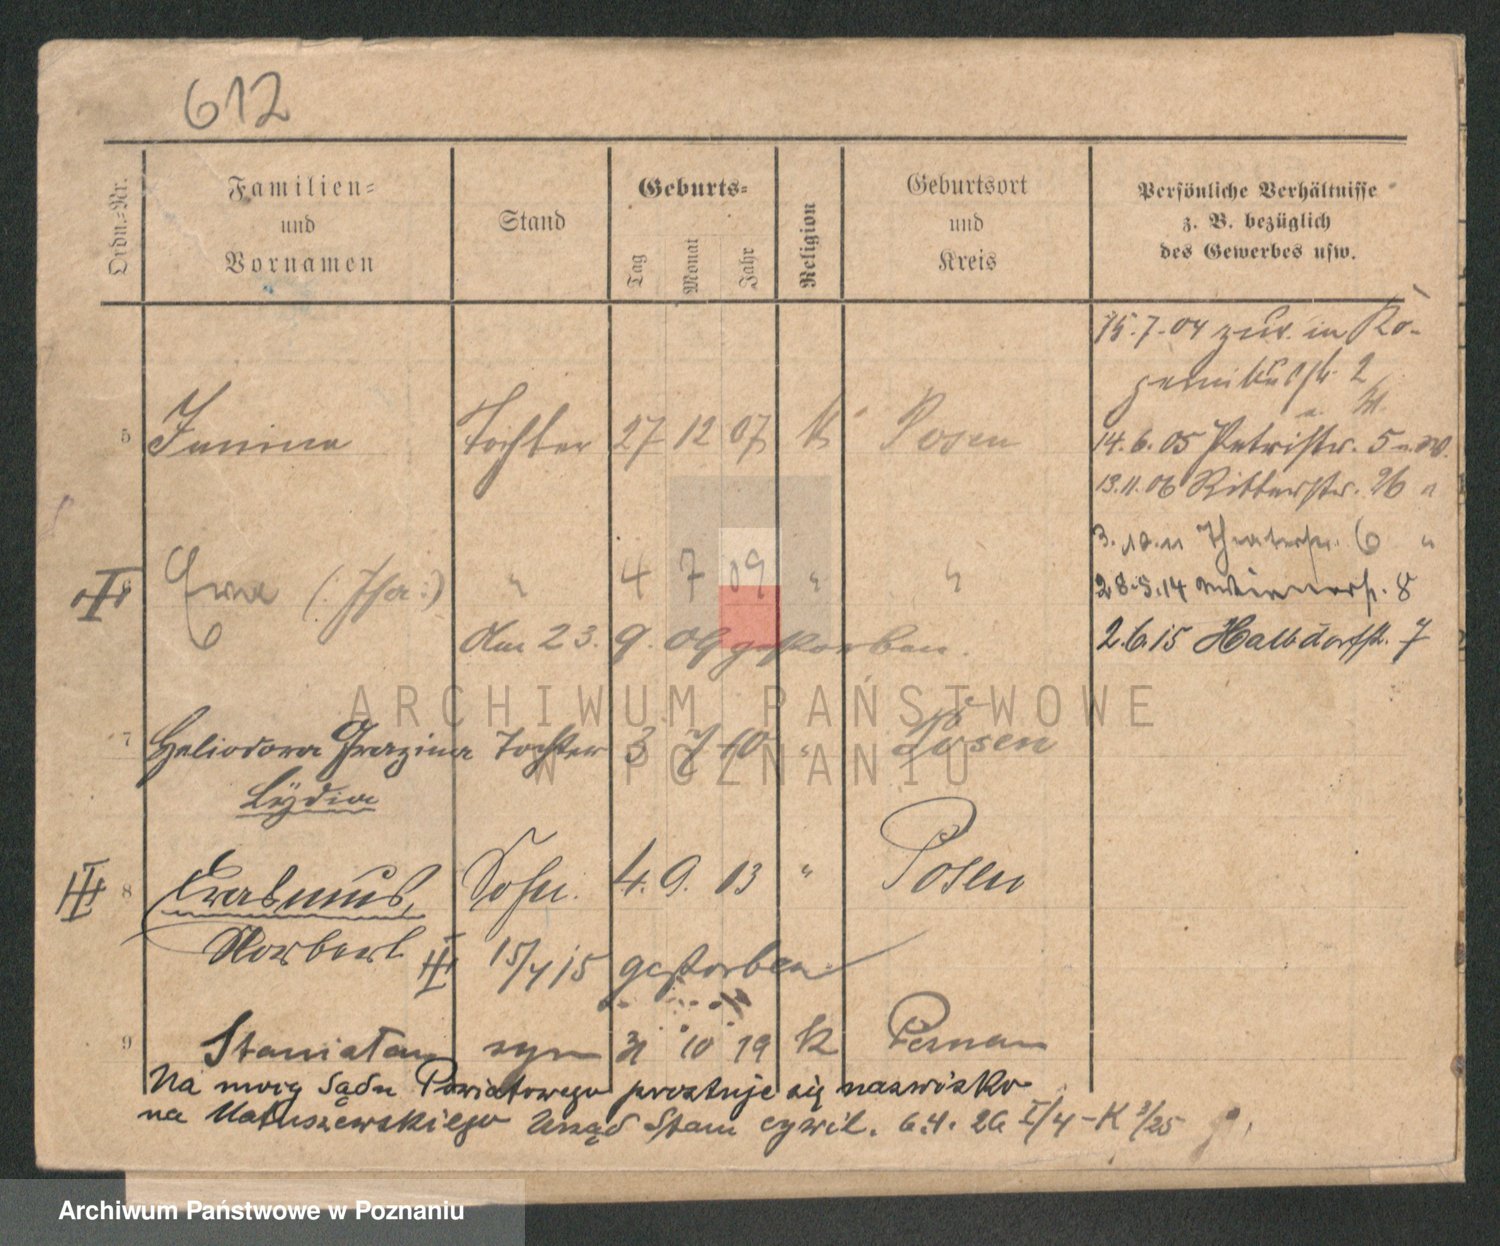 612
Ordn.=Nr.
Familien=
und
Vornamen
Stand
Geburts=
Tag
Monat
Jahr
Religion
Geburtsort
und
Kreis
Persönliche Verhältnisse
z. B. bezüglich
des Gewerbes usw.
15.7.04 zur. in
2
5 Janina Tochter 27 12 07 k Posen
14.6.05 Petristr. 5
13.11.06 Ritterstr. 26 "
3.10.11 Theaterstr. 6 "
6 Ewa " 4 7 09 " "
28.3.14 8
am 23. 9. 09 gestorben.
2.6.15 Halbdorfstr. 7
7 Heliodora Grazina Tochter 3 7 10 " Posen
Lÿdia
8 Erasmus, Sohn. 4. 9. 13 " Posen
Norbert 15/4 15 gestorben
9 Stanisław syn 31 10 19 k Poznań
Na mocy Sądu Powiatowego prostuje się nazwisko
na Matuszewskiego Urząd Stanu cywil. 6.4. 26 I/4-K 3/25
ARCHIWUM PAŃSTWOWE
W POZNANIU
Archiwum Państwowe w Poznaniu